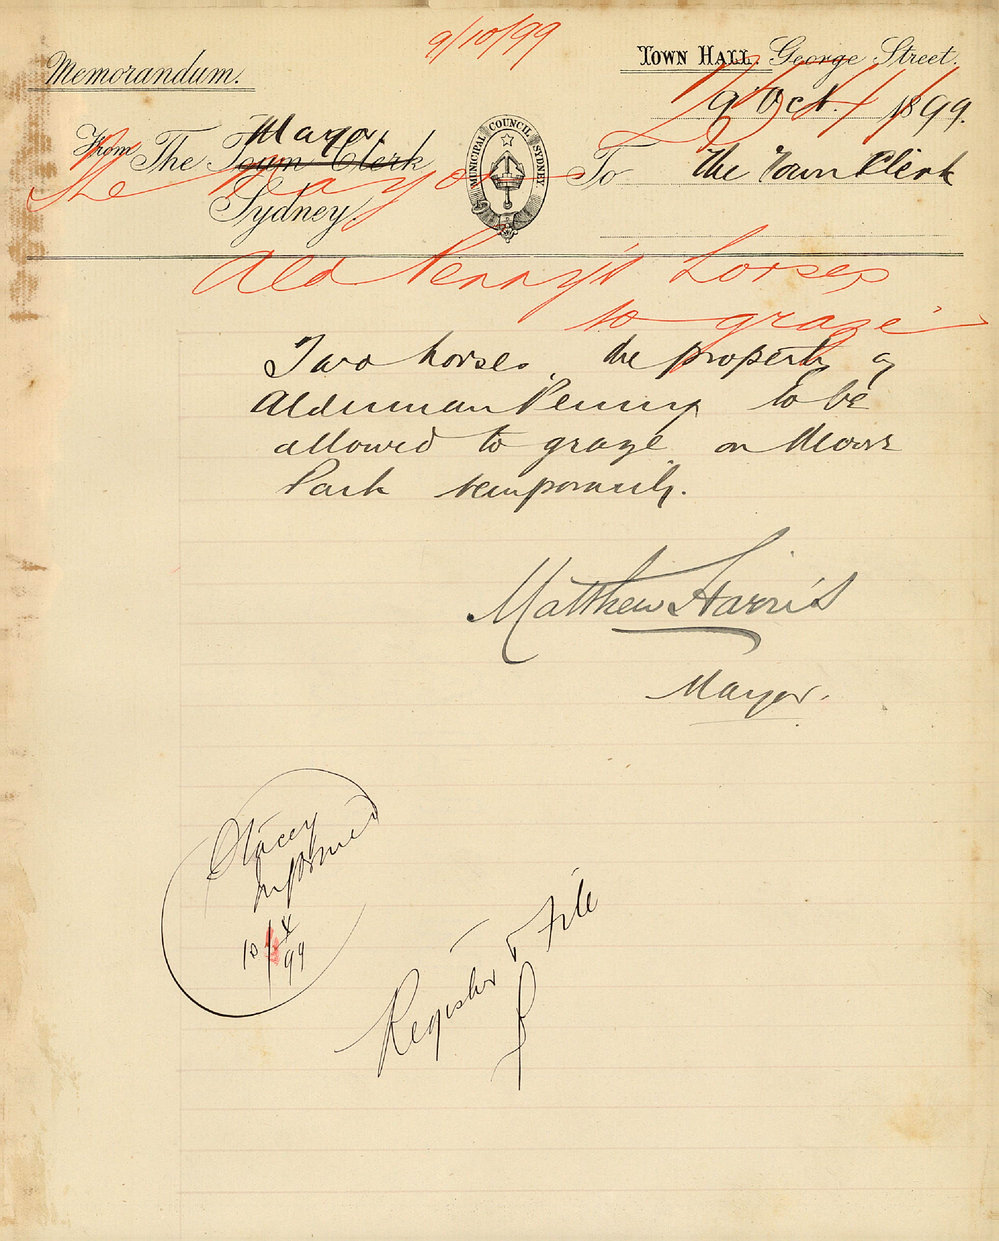 9/10/99
Memorandum.
Town Hall, George Street.
9 Oct. 1899.
Mayor,
From The Town Clerk
To The Town Clerk
The Mayor
Sydney.
MUNICIPAL COUNCIL SYDNEY
Ald Penny's horses
to graze
Two horses, the property of
Alderman Penny to be
allowed to graze on Moore
Park temporarily.
Matthew Harris
Mayor.
Stacey
informed
10/X
99
Register & File